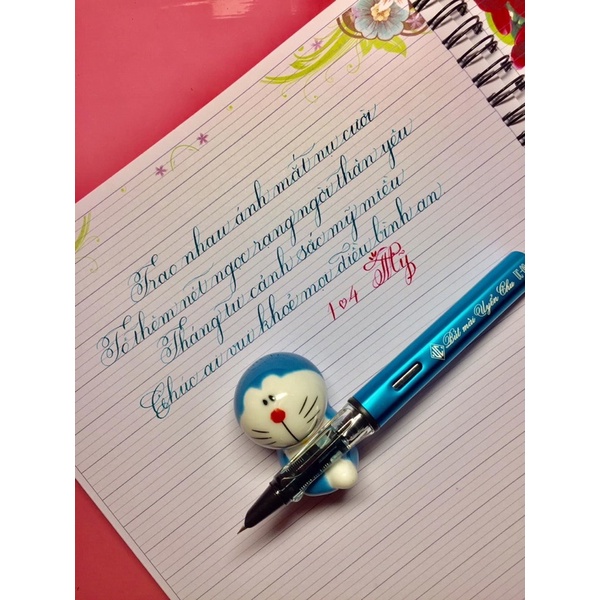 Trao nhau ánh mắt nụ cười
Tô thêm nét ngọc rạng ngời thân yêu
Tháng tư cảnh sắc mỹ miều
Chúc ai vui khoẻ mọi điều bình an
1 4 Mỹ
Bút mài Uyên Chu